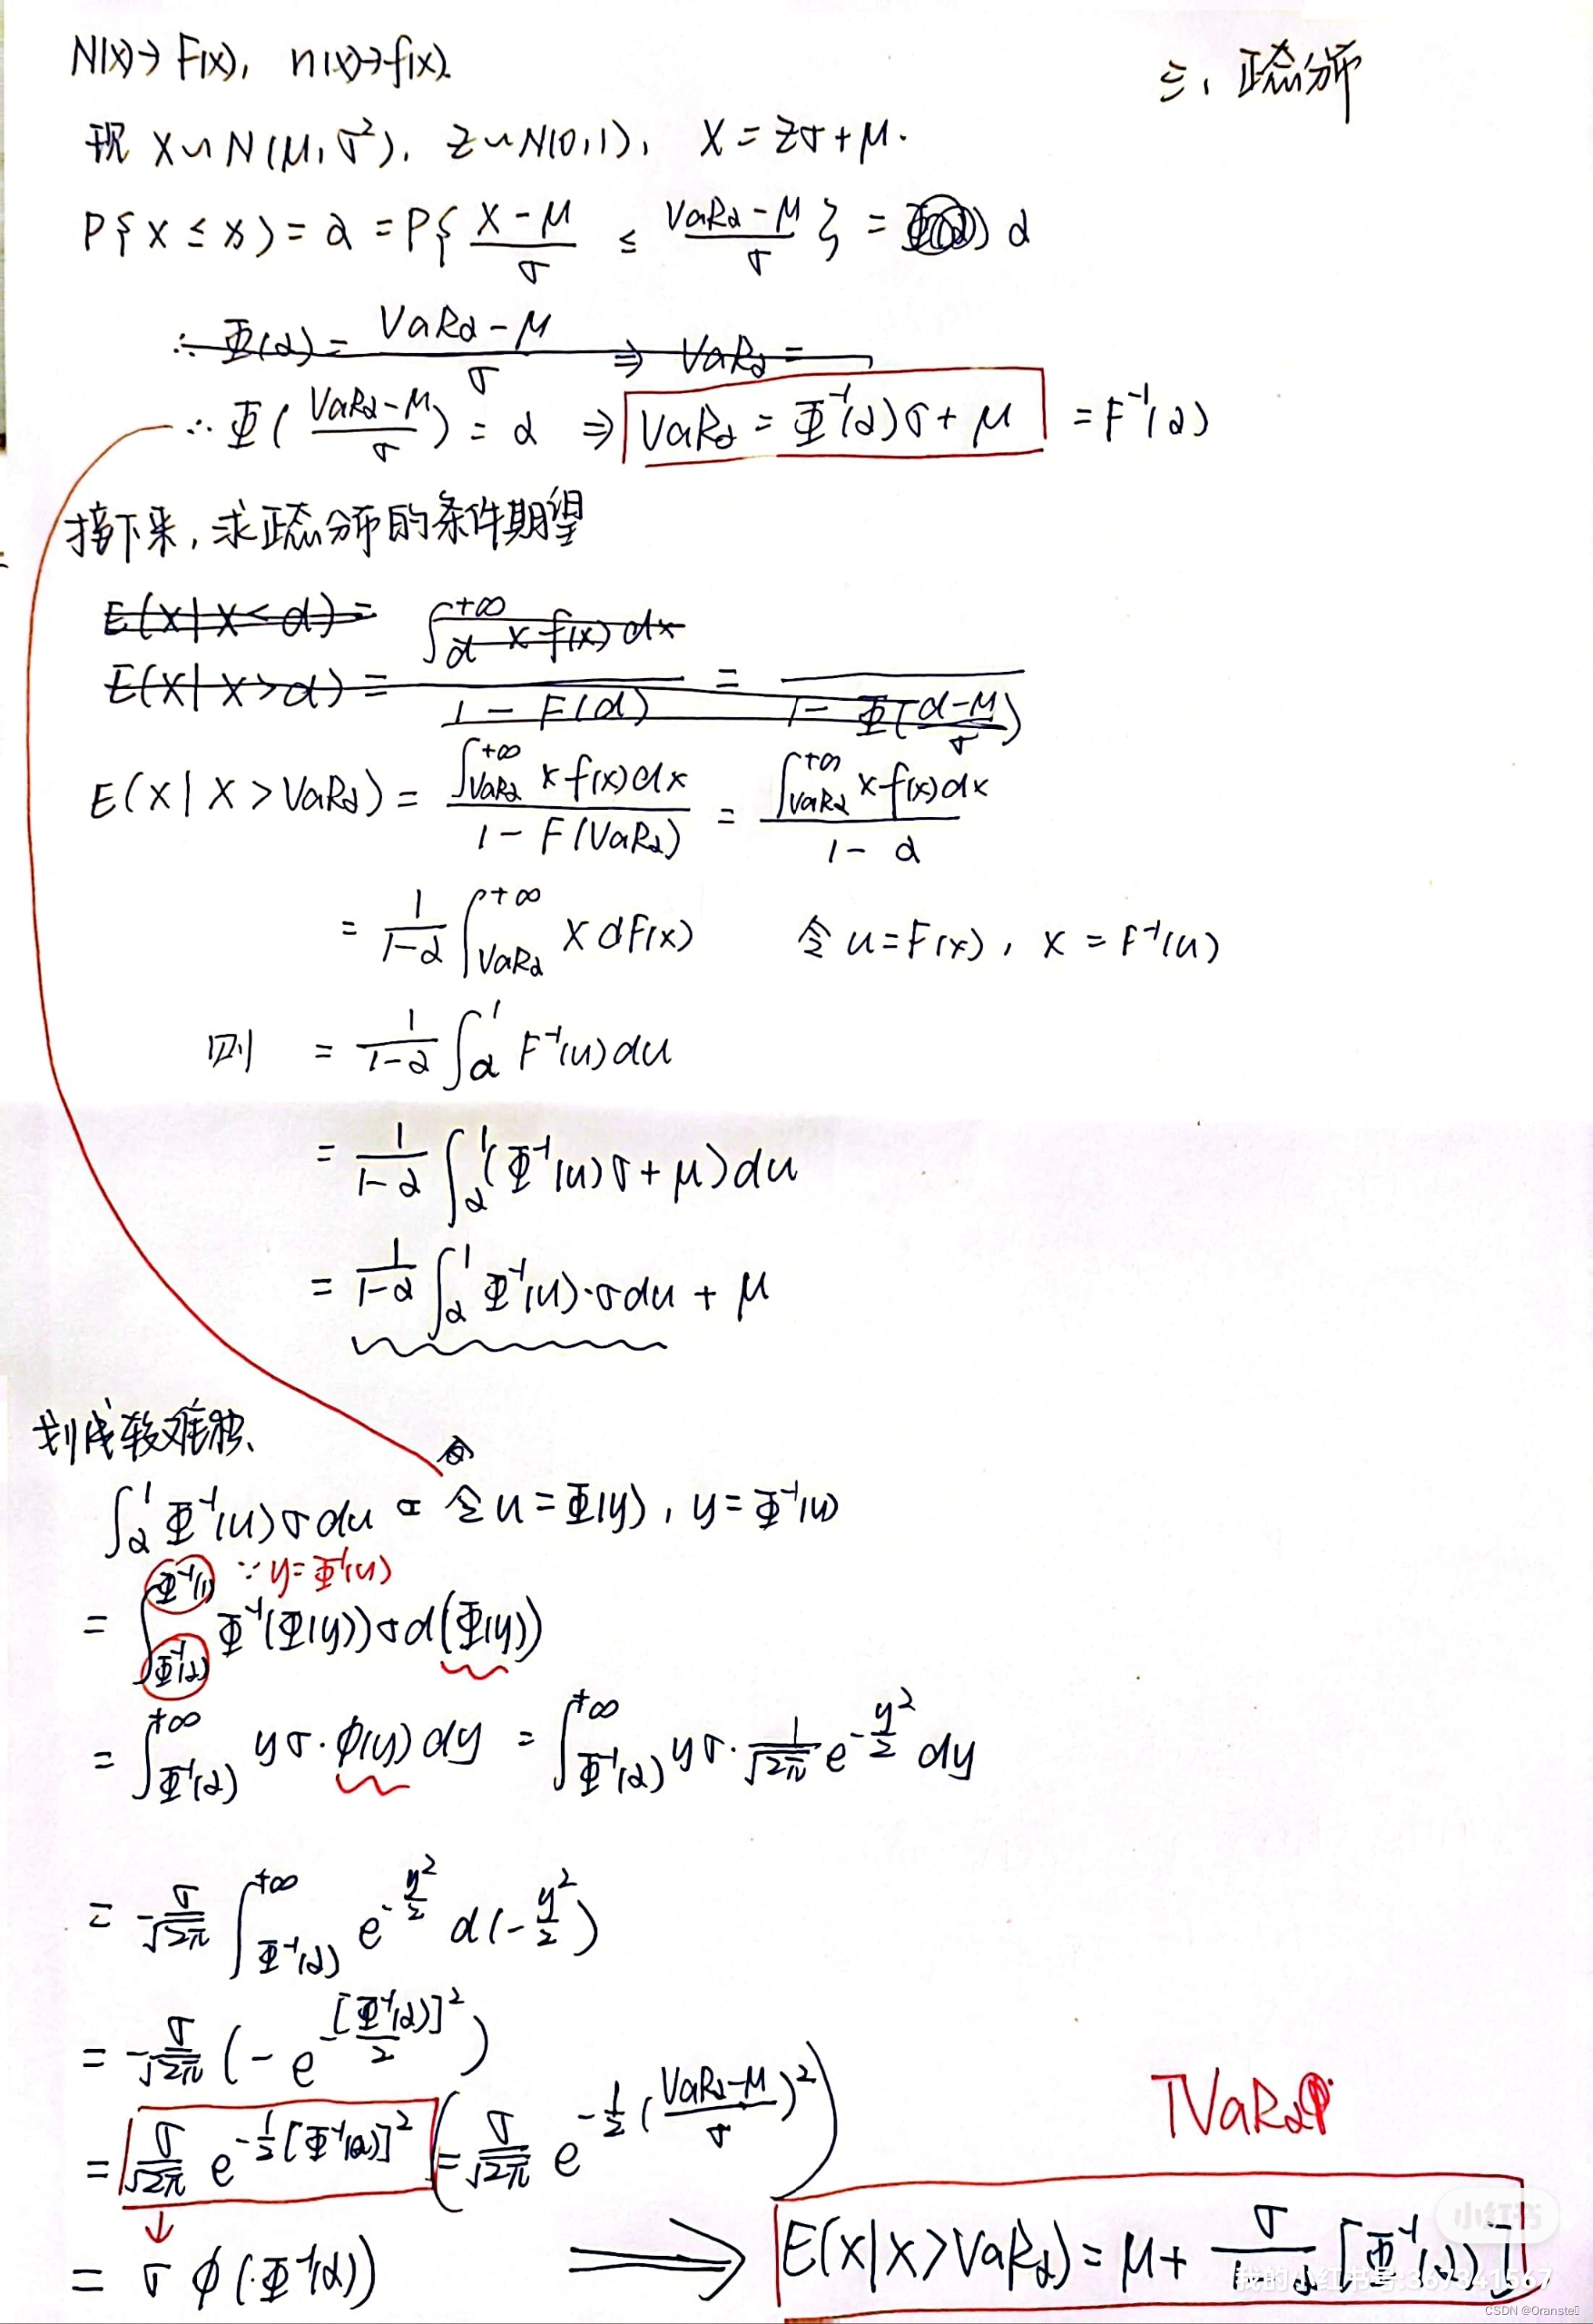 N(x)→F(x), n(x)→f(x).
三、正态分布
现 X~N(μ,σ²), Z~N(0,1), X=Zσ+μ.
P{X≤x}=α=P{(X-μ)/σ ≤ (VaRα-μ)/σ}= α
∴Φ(α)=(VaRα-μ)/σ ⇒ VaRα=
∴Φ((VaRα-μ)/σ)=α ⇒ VaRα=Φ⁻¹(α)σ+μ =F⁻¹(α)
接下来,求正态分布的条件期望
E(X|X<α)=
E(X|X>α)= ∫_α^{+∞} x f(x)dx / (1-F(α)) = / (1-Φ((α-μ)/σ))
E(X|X>VaRα)= ∫_{VaRα}^{+∞} x f(x)dx / (1-F(VaRα)) = ∫_{VaRα}^{+∞} x f(x)dx / (1-α)
= 1/(1-α) ∫_{VaRα}^{+∞} X dF(x) 令u=F(x), x=F⁻¹(u)
则 = 1/(1-α) ∫_α^1 F⁻¹(u)du
= 1/(1-α) ∫_α^1 (Φ⁻¹(u)σ+μ)du
= 1/(1-α) ∫_α^1 Φ⁻¹(u)·σdu+μ
划线较难独
∫_α^1 Φ⁻¹(u)σdu = 令u=Φ(y), y=Φ⁻¹(u)
∵y=Φ⁻¹(u)
= ∫_{Φ⁻¹(α)}^{Φ⁻¹(1)} Φ⁻¹(Φ(y))σd(Φ(y))
= ∫_{Φ⁻¹(α)}^{+∞} yσ·φ(y)dy = ∫_{Φ⁻¹(α)}^{+∞} yσ·1/√2π e^{-y²/2} dy
= -σ/√2π ∫_{Φ⁻¹(α)}^{+∞} e^{-y²/2} d(-y²/2)
= -σ/√2π (-e^{-[Φ⁻¹(α)]²/2})
= σ/√2π e^{-1/2[Φ⁻¹(α)]²} (= σ/√2π e^{-1/2((VaRα-μ)/σ)²})
TVaRα
↓
= σφ(Φ⁻¹(α)) ⟹ E(X|X>VaRα)=μ+ σ/(1-α) [Φ⁻¹(α)]
小红书
我的小红书号:367341567
CSDN @Oranste